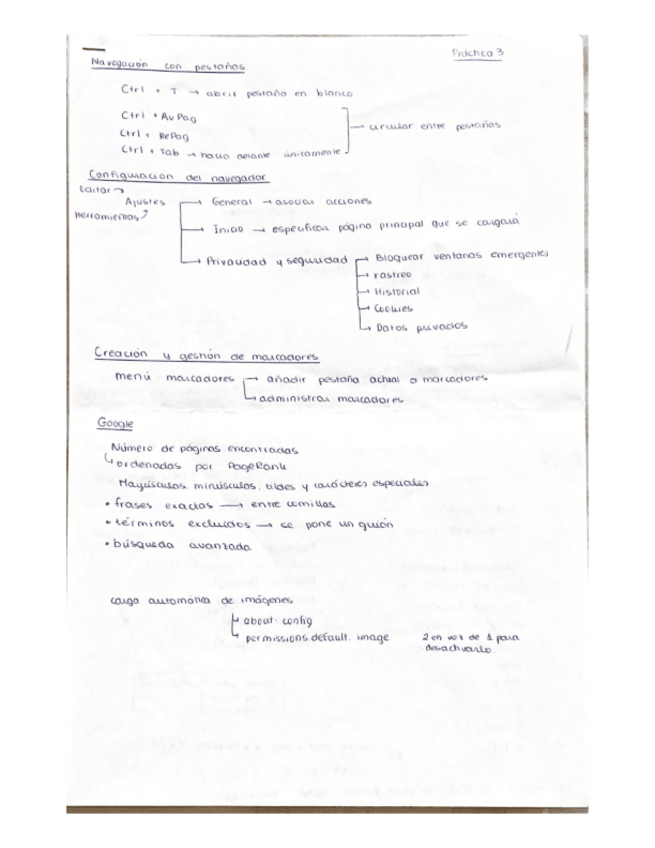 Práctica 3
Navegación con pestañas
Ctrl + T → abrir pestaña en blanco
Ctrl + AvPag
Ctrl + RePag
Ctrl + Tab → hacia adelante únicamente
→ circular entre pestañas
Configuración del navegador
Editar
Ajustes
Herramientas
→ General → asociar acciones
→ Inicio → especificar página principal que se cargará
→ Privacidad y seguridad
→ Bloquear ventanas emergentes
→ rastreo
→ Historial
→ Cookies
→ Datos privados
Creación y gestión de marcadores
menú marcadores → añadir pestaña actual a marcadores
→ administrar marcadores
Google
Número de páginas encontradas
↳ ordenadas por PageRank
Mayúsculas, minúsculas, tildes y carácteres especiales
• frases exactas → entre comillas
• términos excluidos → se pone un guión
• búsqueda avanzada
carga automática de imágenes
about: config
permissions default. image
2 en vez de 1 para
desactivarlo